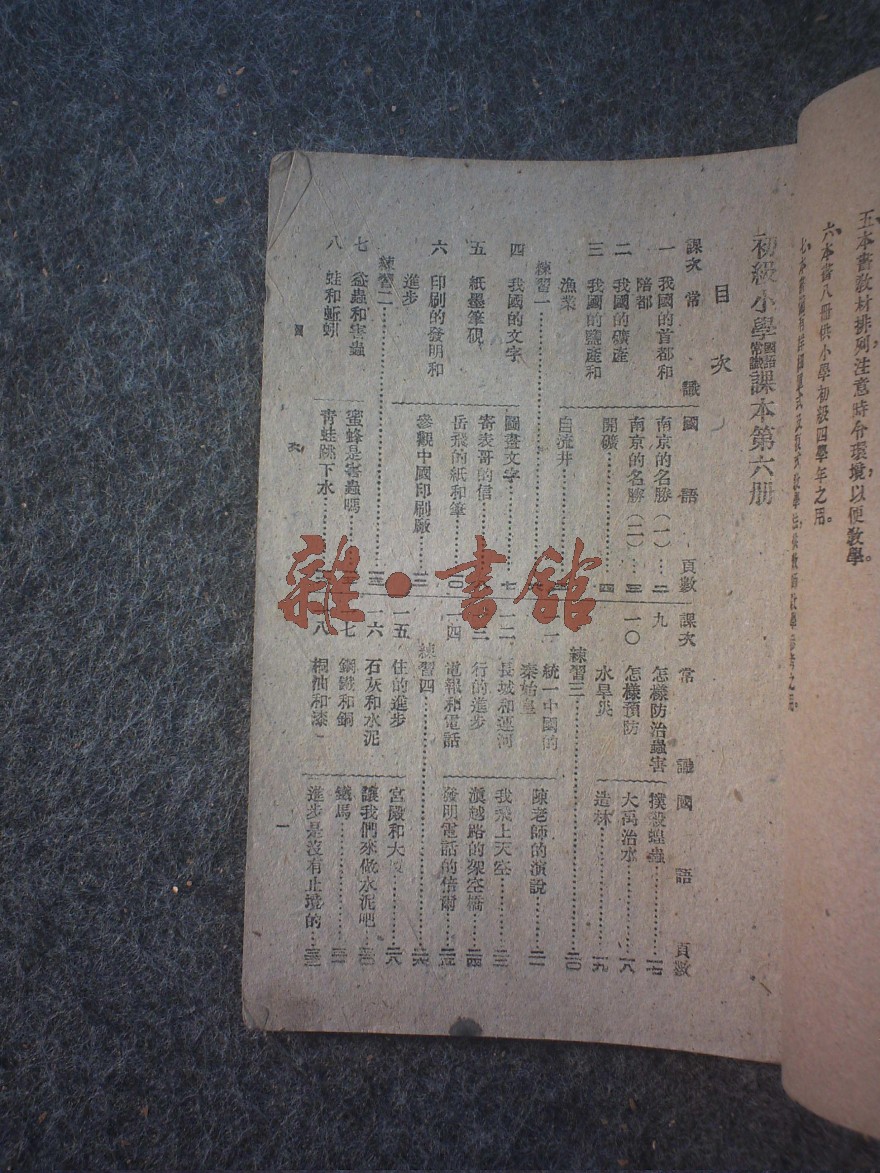 五、本書教材排列注意時令環境，以便教學。
六、本書八冊供小學初級四學年之用。
初級小學國語常識課本第六册
目次
課次 常識 國語 頁數
一 我國的首都和陪都 南京的名勝（一）…二
二 我國的礦產 南京的名勝（二）…三
三 我國的鹽產和漁業 開礦…四
自流井
練習一
四 我國的文字 圖畫文字…七
五 紙墨筆硯 寄表哥的信
岳飛的紙和筆…一〇
六 印刷的發明和進步 參觀中國印刷廠
練習二
七 益蟲和害蟲 蜜蜂是害蟲嗎
八 蛙和蚯蚓 青蛙跳下水
課次 常識 國語 頁數
九 怎樣防治蟲害 撲殺蝗蟲…一七
一〇 怎樣預防水旱災 大禹治水…一八
造林…一九
練習三…二〇
統一中國的秦始皇 陳老師的演說…二一
長城和運河 我飛上天空
行的進步 滇越路的架空橋…二四
一四 電報和電話 發明電話的倍爾…二五
練習四…二六
一五 住的進步 宮殿和大廈…二八
一六 石灰和水泥 讓我們來做水泥吧…三〇
七 鋼鐵和銅 鐵馬
八 桐油和漆 進步是沒有止境的
一
雜·書館